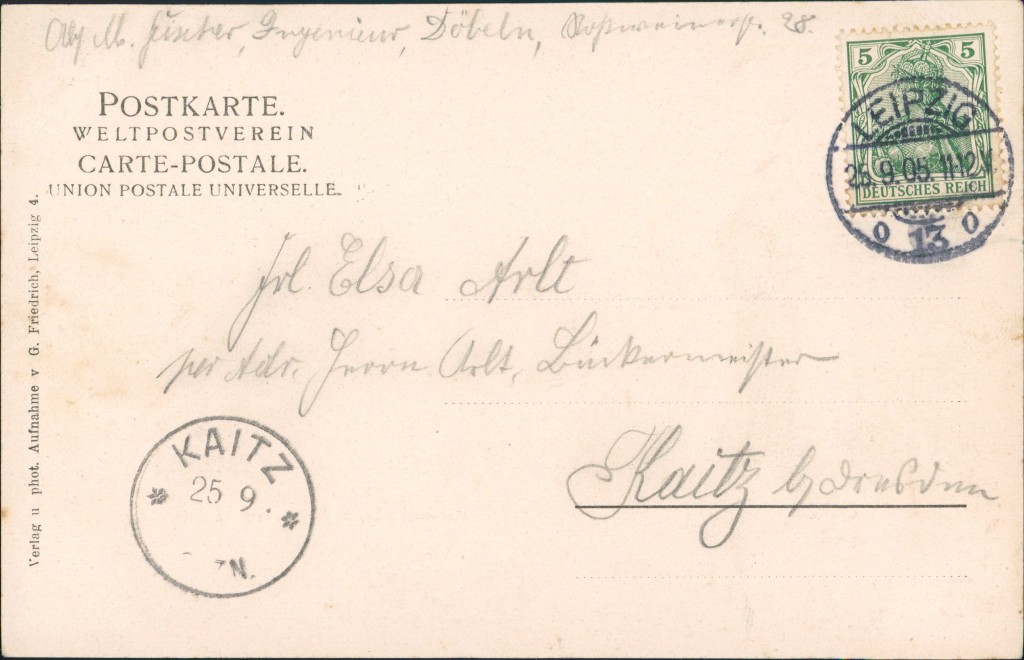 Abs. M. Fischer, Ingenieur, Döbeln, Roßweinerstr. 28.
5 5
LEIPZIG
25.9.05. 11-12 V
DEUTSCHES REICH
o 13 o
POSTKARTE.
WELTPOSTVEREIN
CARTE-POSTALE.
UNION POSTALE UNIVERSELLE.
Frl. Elsa Arlt
per Adr. Herrn Arlt, Bäckermeister
Kaitz b/Dresden
KAITZ
* 25 9. *
N.
Verlag u phot. Aufnahme v G. Friedrich, Leipzig 4.